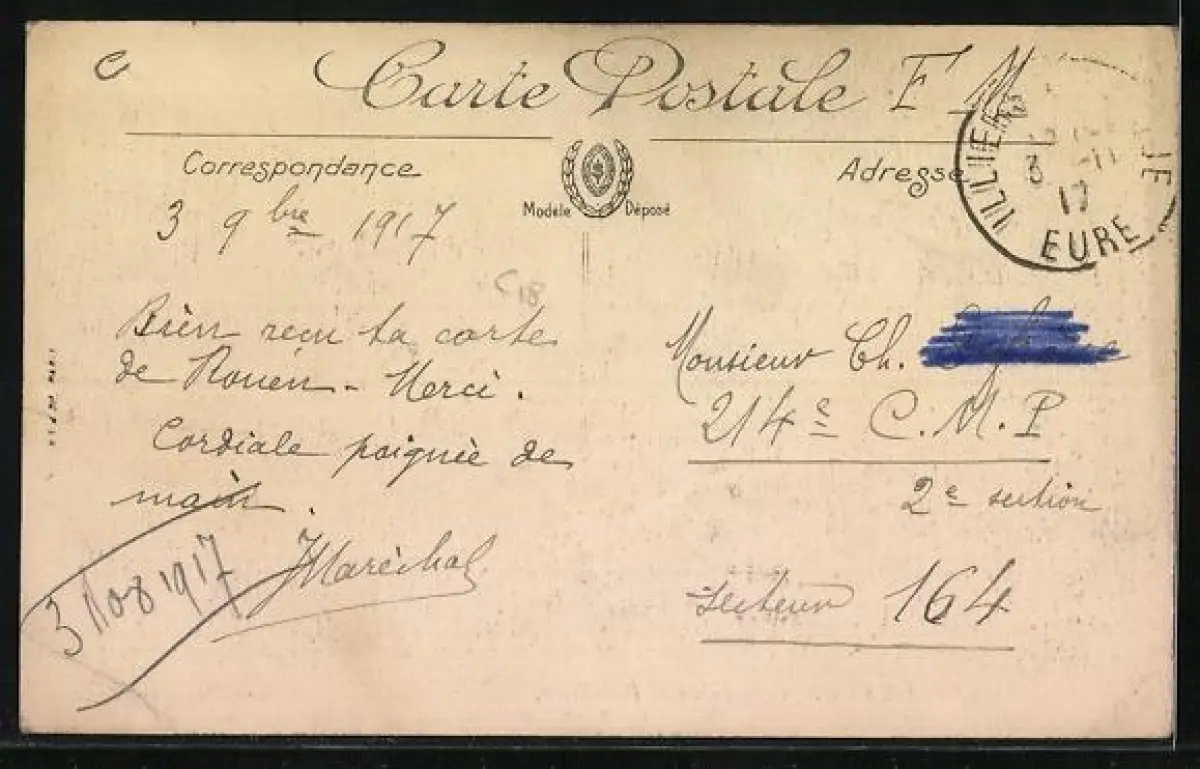 Carte Postale F M
Correspondance
Modèle Déposé
Adresse
VILLIERS
3 -11
17
EURE
3 9bre 1917
C18
Bien reçu ta carte
de Rouen - Merci.
Cordiale poignée de
main.
JMaréchal
3 Nov 1917
Monsieur Ch.
214e C.M.P
2e section
secteur 164